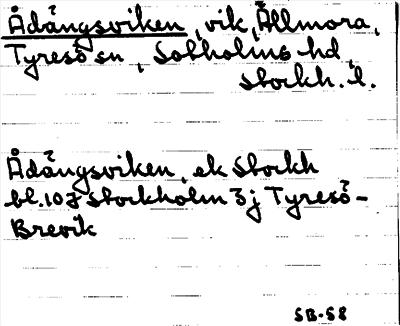 Ådängsviken, vik, Ällmora,
Tyresö sn, Sotholms hd,
Stockh. l.
Ådängsviken, ek Stockh
bl. 10J Stockholm 3j Tyresö-
Brevik
SB-58